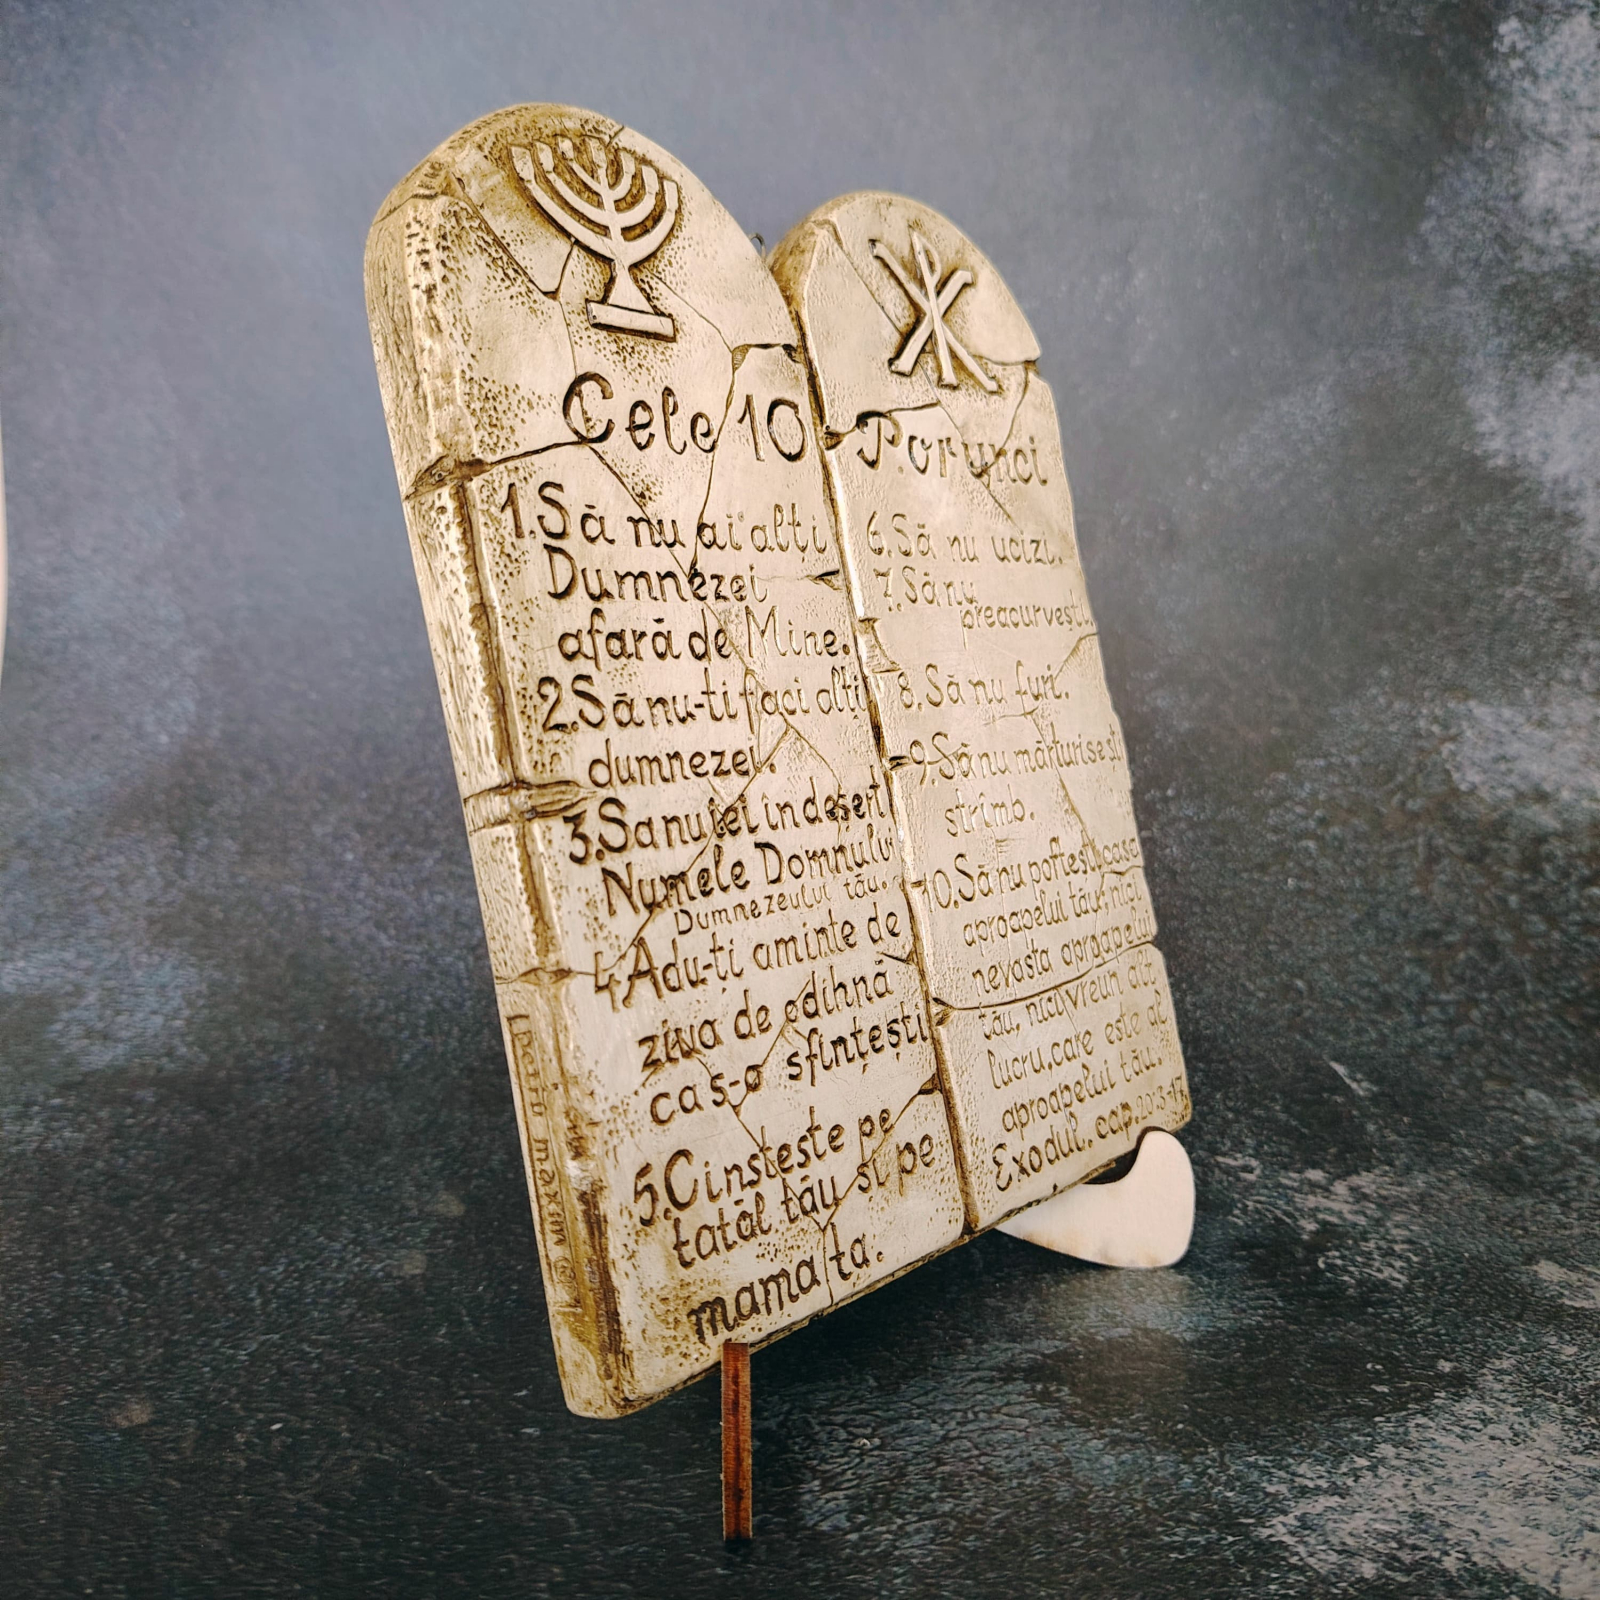 Cele 10
1. Să nu ai alti
Dumnezei
afară de Mine.
2. Să nu-ti faci alți
dumnezei.
3. Sa nu iei in desert
Numele Domnului
Dumnezeului tău.
4. Adu-ți aminte de
ziua de odihnă
ca s-o sfințești
5. Cinsteste pe
tatăl tău si pe
mama ta.
Porunci
6. Să nu ucizi.
7. Să nu
preacurvești.
8. Să nu furi.
9. Să nu mărturisești
strîmb.
10. Să nu poftești casa
aproapelui tău, nici
nevasta aproapelui
tău, nici vreun alt
lucru, care este al
aproapelui tău.
Exodul. cap. 20:3-17
Petro maxim ©